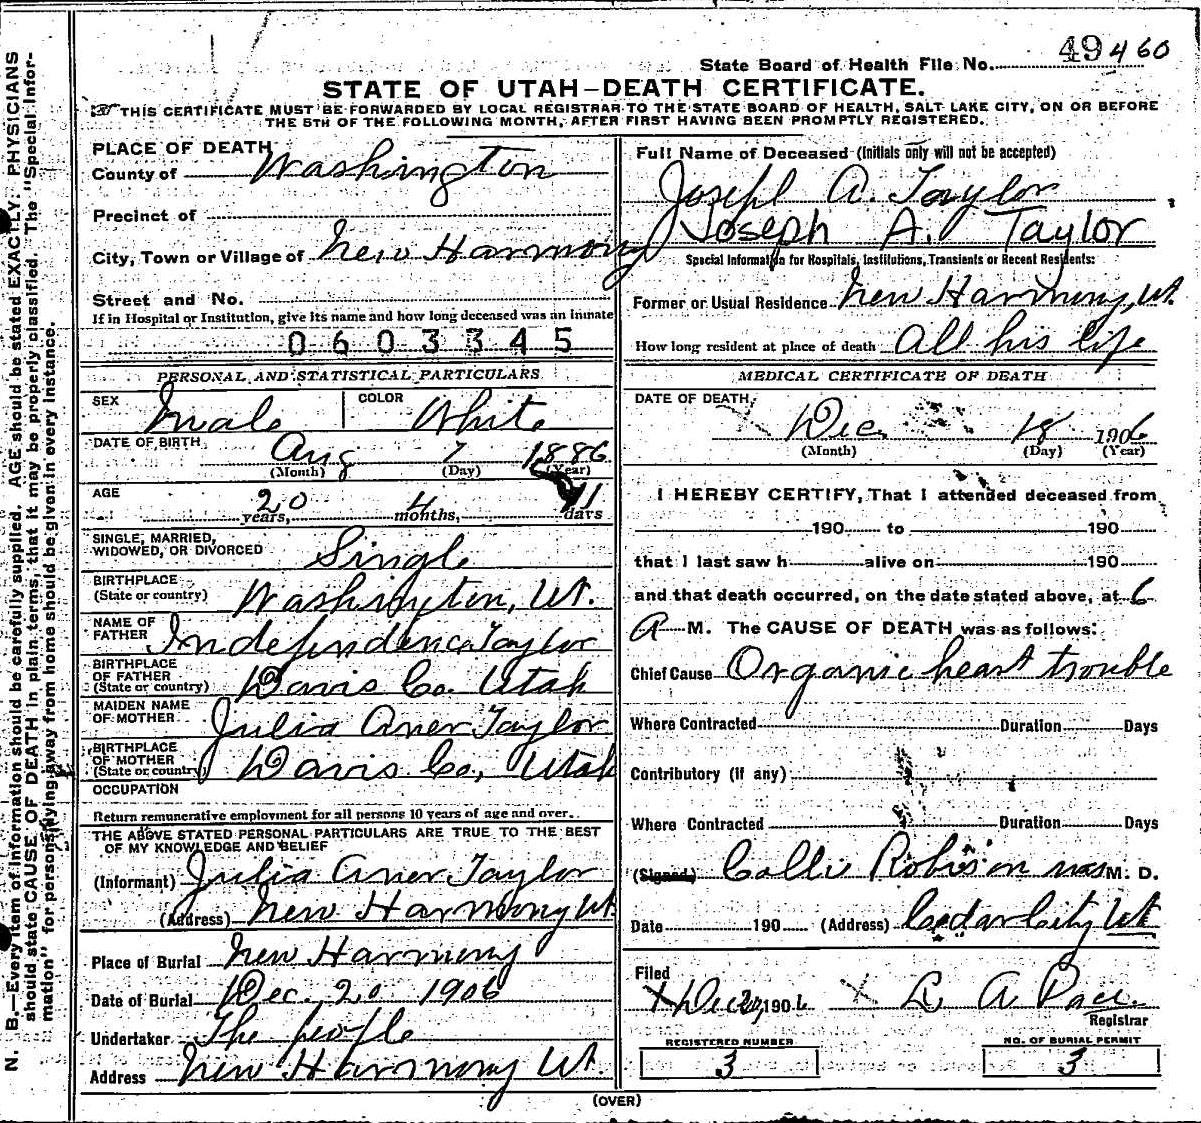 49460
State Board of Health File No.
STATE OF UTAH—DEATH CERTIFICATE.
THIS CERTIFICATE MUST BE FORWARDED BY LOCAL REGISTRAR TO THE STATE BOARD OF HEALTH, SALT LAKE CITY, ON OR BEFORE
THE 5TH OF THE FOLLOWING MONTH, AFTER FIRST HAVING BEEN PROMPTLY REGISTERED.
PLACE OF DEATH
County of Washington
Precinct of
City, Town or Village of New Harmony
Street and No.
If in Hospital or Institution, give its name and how long deceased was an inmate
0603345
PERSONAL AND STATISTICAL PARTICULARS
SEX Male COLOR White
DATE OF BIRTH Aug 7 1886
(Month) (Day) (Year)
AGE 20 years, 4 months, 11 days
SINGLE, MARRIED,
WIDOWED, OR DIVORCED Single
BIRTHPLACE
(State or country) Washington, Ut.
NAME OF
FATHER Independence Taylor
BIRTHPLACE
OF FATHER
(State or country) Davis Co. Utah
MAIDEN NAME
OF MOTHER Julia Aner Taylor
BIRTHPLACE
OF MOTHER
(State or country) Davis Co, Utah
OCCUPATION
Return remunerative employment for all persons 10 years of age and over.
THE ABOVE STATED PERSONAL PARTICULARS ARE TRUE TO THE BEST
OF MY KNOWLEDGE AND BELIEF
(Informant) Julia Aner Taylor
(Address) New Harmony Ut
Place of Burial New Harmony
Date of Burial Dec. 20 1906
Undertaker The people
Address New Harmony Ut.
Full Name of Deceased (Initials only will not be accepted)
Joseph A. Taylor
Joseph A. Taylor
Special Information for Hospitals, Institutions, Transients or Recent Residents:
Former or Usual Residence New Harmony, Ut
How long resident at place of death All his life
MEDICAL CERTIFICATE OF DEATH
DATE OF DEATH,
Dec. 18 1906
(Month) (Day) (Year)
I HEREBY CERTIFY, That I attended deceased from
190 to 190
that I last saw h alive on 190
and that death occurred, on the date stated above, at 6
A M. The CAUSE OF DEATH was as follows:
Chief Cause Organic heart trouble
Where Contracted Duration Days
Contributory (if any)
Where Contracted Duration Days
(Signed) Robinson M. D.
Date 190 (Address) Cedar City Ut
Filed
Dec 1906 L A Pace
Registrar
REGISTERED NUMBER
3
NO. OF BURIAL PERMIT
3
(OVER)
N. B.—Every item of information should be carefully supplied. AGE should be stated EXACTLY. PHYSICIANS
should state CAUSE OF DEATH in plain terms, that it may be properly classified. The "Special Infor-
mation" for persons dying away from home should be given in every instance.